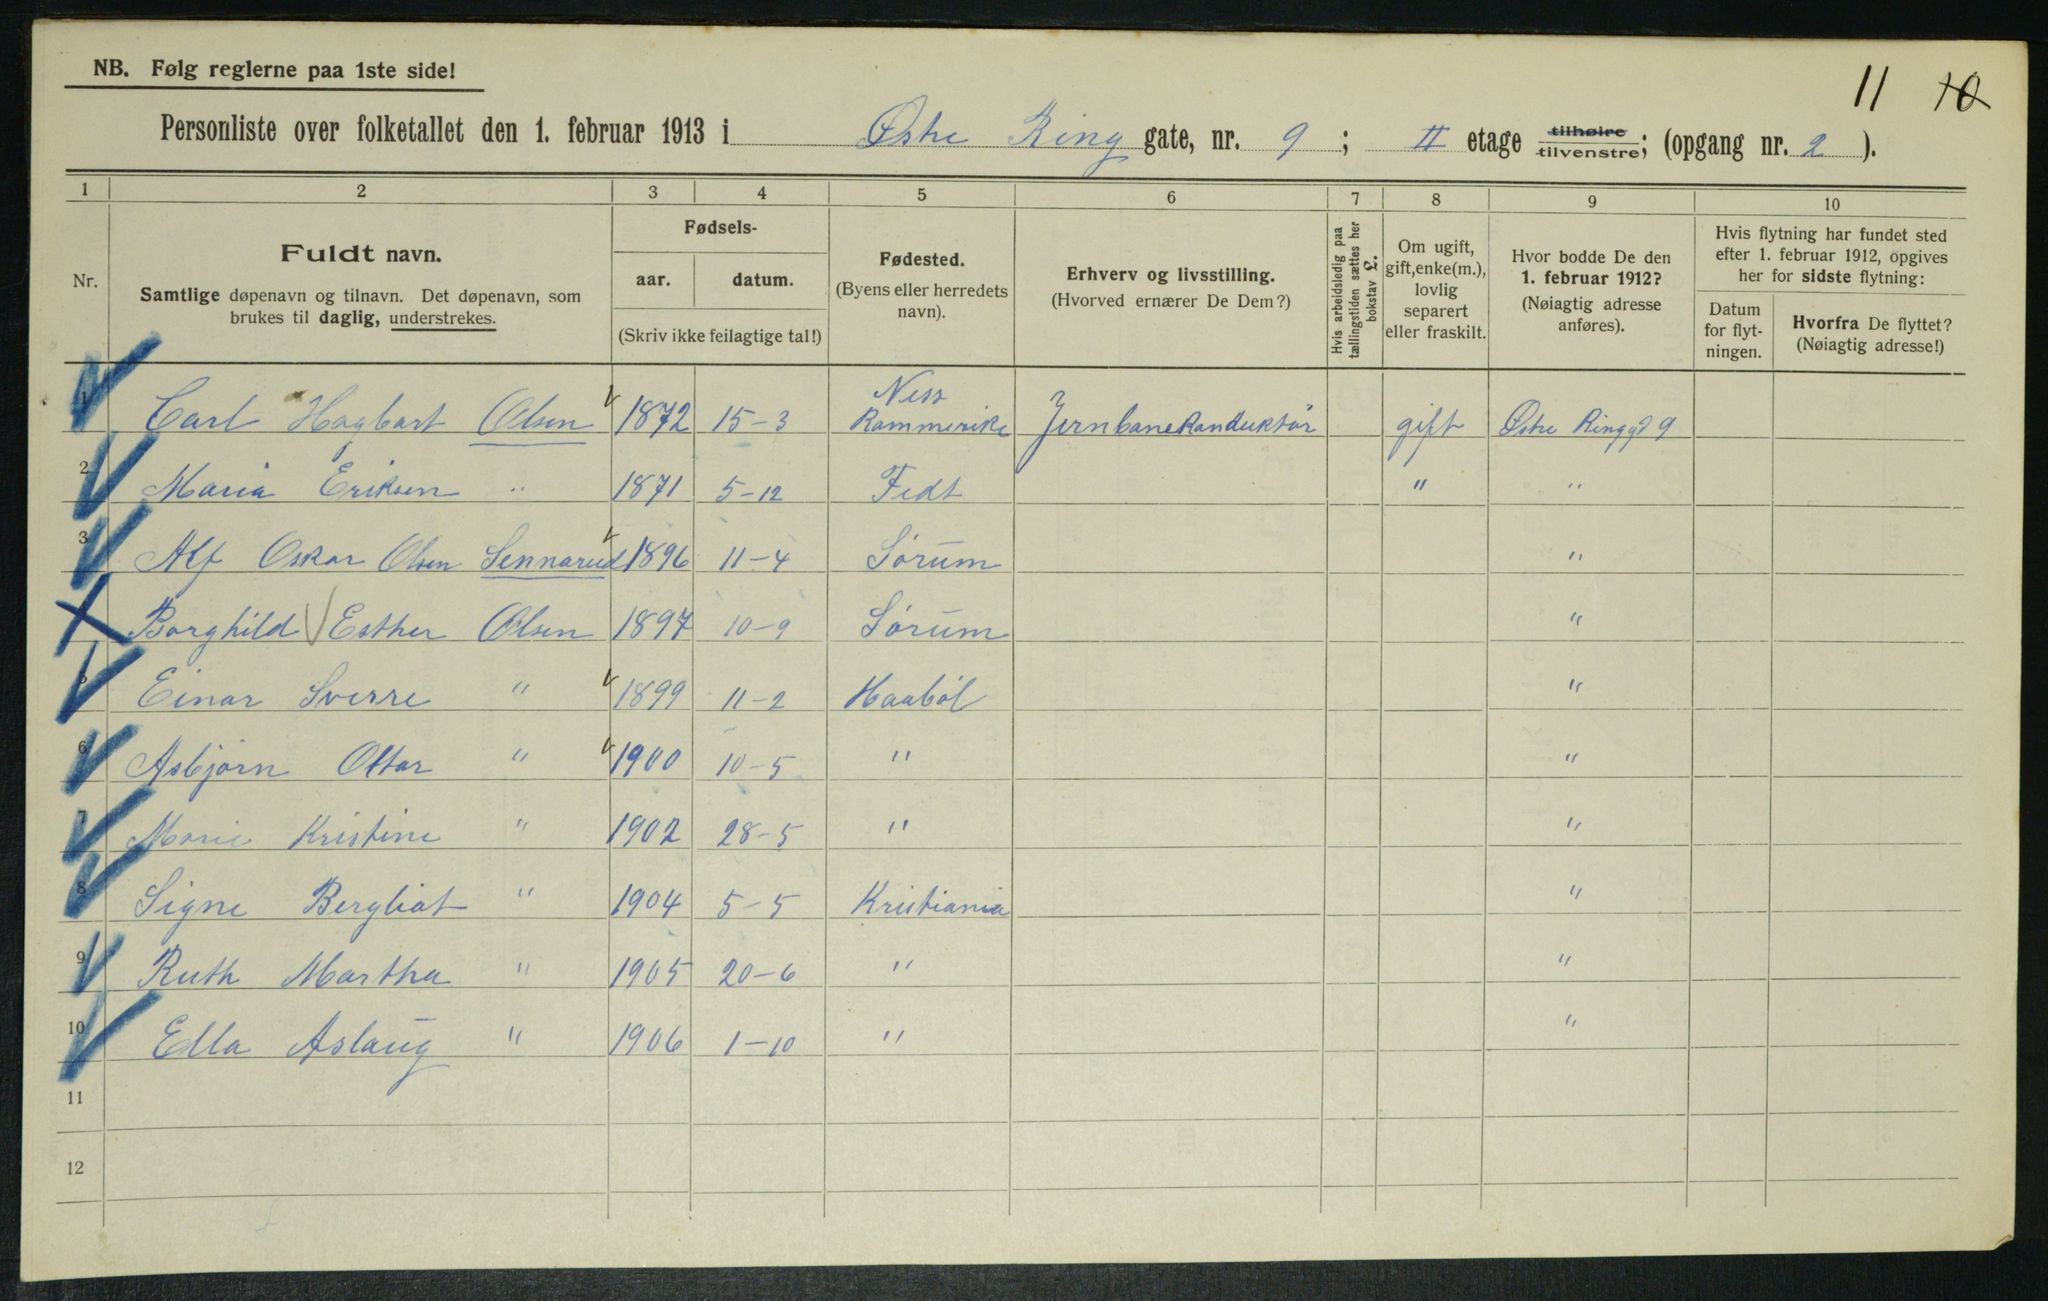 11 10
NB. Følg reglerne paa 1ste side!
Personliste over folketallet den 1. februar 1913 i Østre Ring gate, nr. 9; II etage tilhøire / tilvenstre; (opgang nr. 2).
1 2 3 4 5 6 7 8 9 10
Nr.
Fuldt navn.
Samtlige døpenavn og tilnavn. Det døpenavn, som
brukes til daglig, understrekes.
Fødsels-
aar. datum.
(Skriv ikke feilagtige tal!)
Fødested.
(Byens eller herredets
navn).
Erhverv og livsstilling.
(Hvorved ernærer De Dem?)
Hvis arbeidsledig paa
tællingstiden sættes her
bokstav L.
Om ugift,
gift, enke(m.),
lovlig
separert
eller fraskilt.
Hvor bodde De den
1. februar 1912?
(Nøiagtig adresse
anføres).
Hvis flytning har fundet sted
efter 1. februar 1912, opgives
her for sidste flytning:
Datum
for flyt-
ningen.
Hvorfra De flyttet?
(Nøiagtig adresse!)
1 Carl Hagbart Olsen 1872 15-3 Ness Rommerike Jernbanekonduktør gift Østre Ringgd 9
2 Maria Eriksen " 1871 5-12 Fedt " "
3 Alf Oskar Olsen Sennerud 1896 11-4 Sørum "
Borghild Esther Olsen 1897 10-9 Sørum "
5 Einar Sverre " 1899 11-2 Haabøl "
6 Asbjørn Ottar " 1900 10-5 " "
7 Marie Kristine " 1902 28-5 " "
8 Signe Bergliot " 1904 5-5 Kristiania "
9 Ruth Martha " 1905 20-6 " "
10 Ella Aslaug " 1906 1-10 " "
11
12